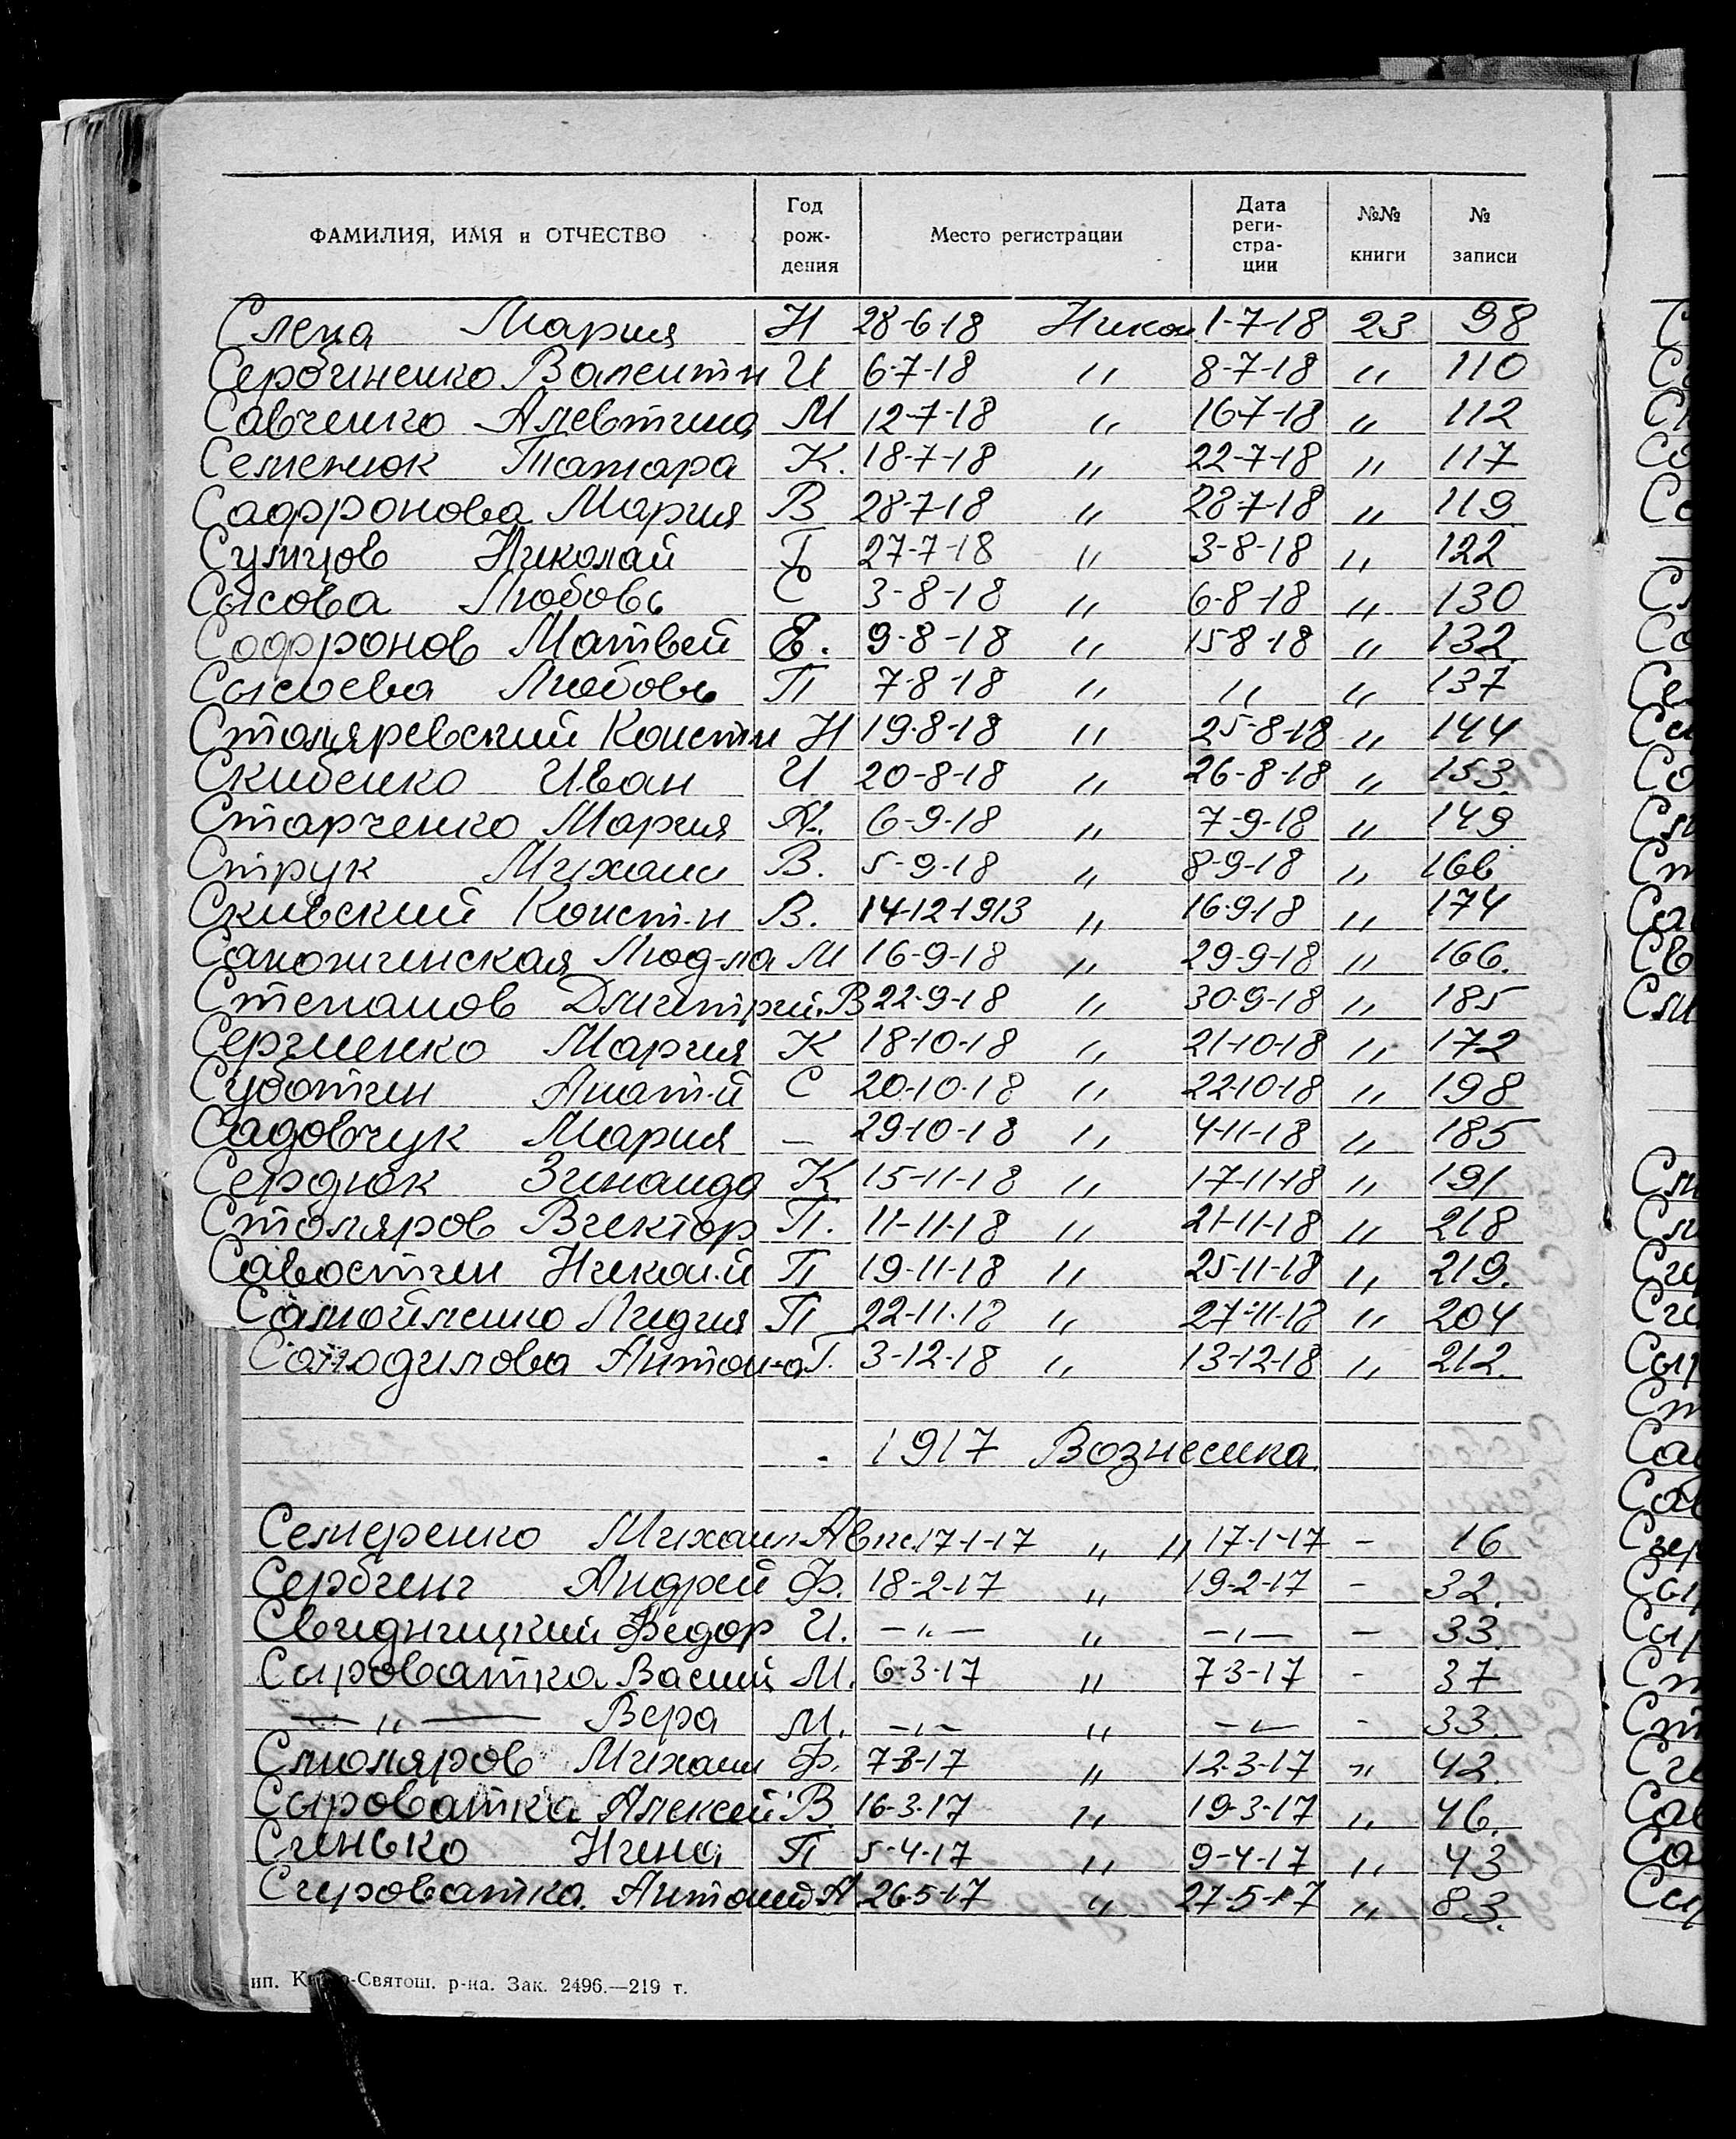 ФАМИЛИЯ, ИМЯ и ОТЧЕСТВО Год рождения Место регистрации Дата регистрации №№ книги № записи
Слепа Мария Н 28-6-18 Никол 1-7-18 23 98
Сербиненко Валентин И 6-7-18 " 8-7-18 " 110
Савченко Алевтина М 12-7-18 " 16-7-18 " 112
Семенюк Тамара К. 18-7-18 " 22-7-18 " 117
Сафронова Мария В 28-7-18 " 28-7-18 " 119
Сумцов Николай Г 27-7-18 " 3-8-18 " 122
Сысова Любовь С 3-8-18 " 6-8-18 " 130
Софронов Матвей Е. 9-8-18 " 15-8-18 " 132
Сысоева Любовь П 7-8-18 " " " 137
Столяревский Констн Н 19-8-18 " 25-8-18 " 144
Скибенко Иван И 20-8-18 " 26-8-18 " 153
Старченко Мария 6-9-18 " 7-9-18 " 149
Струк Михаил В. 5-9-18 " 8-9-18 " 166
Скивский Конст-н В. 14-12-1913 " 16-9-18 " 174
Сапожинская Люд-ла М 16-9-18 " 29-9-18 " 166.
Степанов Дмитрий В 22-9-18 " 30-9-18 " 185
Сергиенко Мария К 18-10-18 " 21-10-18 " 172
Суботин Анат-й С 20-10-18 " 22-10-18 " 198
Садовчук Мария — 29-10-18 " 4-11-18 " 185
Сердюк Зинаида К 15-11-18 " 17-11-18 " 191
Столяров Виктор П. 11-11-18 " 21-11-18 " 218
Савостин Никол.й П 19-11-18 " 25-11-18 " 219.
Самойленко Лидия П 22-11-18 " 27-11-18 " 204
Солодилова Антон-а Г. 3-12-18 " 13-12-18 " 212.
1917 Вознесенка.
Семеренко Михаил Авкс. 17-1-17 " " 17-1-17 - 16
Сербин Андрей Ф. 18-2-17 " 19-2-17 - 32.
Свидницкий Федор И. —"— " —"— - 33.
Сыроватка Васили М. 6-3-17 " 7-3-17 - 37
—"— Вера М. —"— " —"— - 33.
Смоляров Михаил Ф. 7-3-17 " 12-3-17 " 42.
Сыроватка Алексей В. 16-3-17 " 19-3-17 " 46.
Синько Нина П 5-4-17 " 9-4-17 " 43
Сироватка Антоний А 26-5-17 " 27-5-17 " 83.
ип. К -Святош. р-на. Зак. 2496.—219 т.